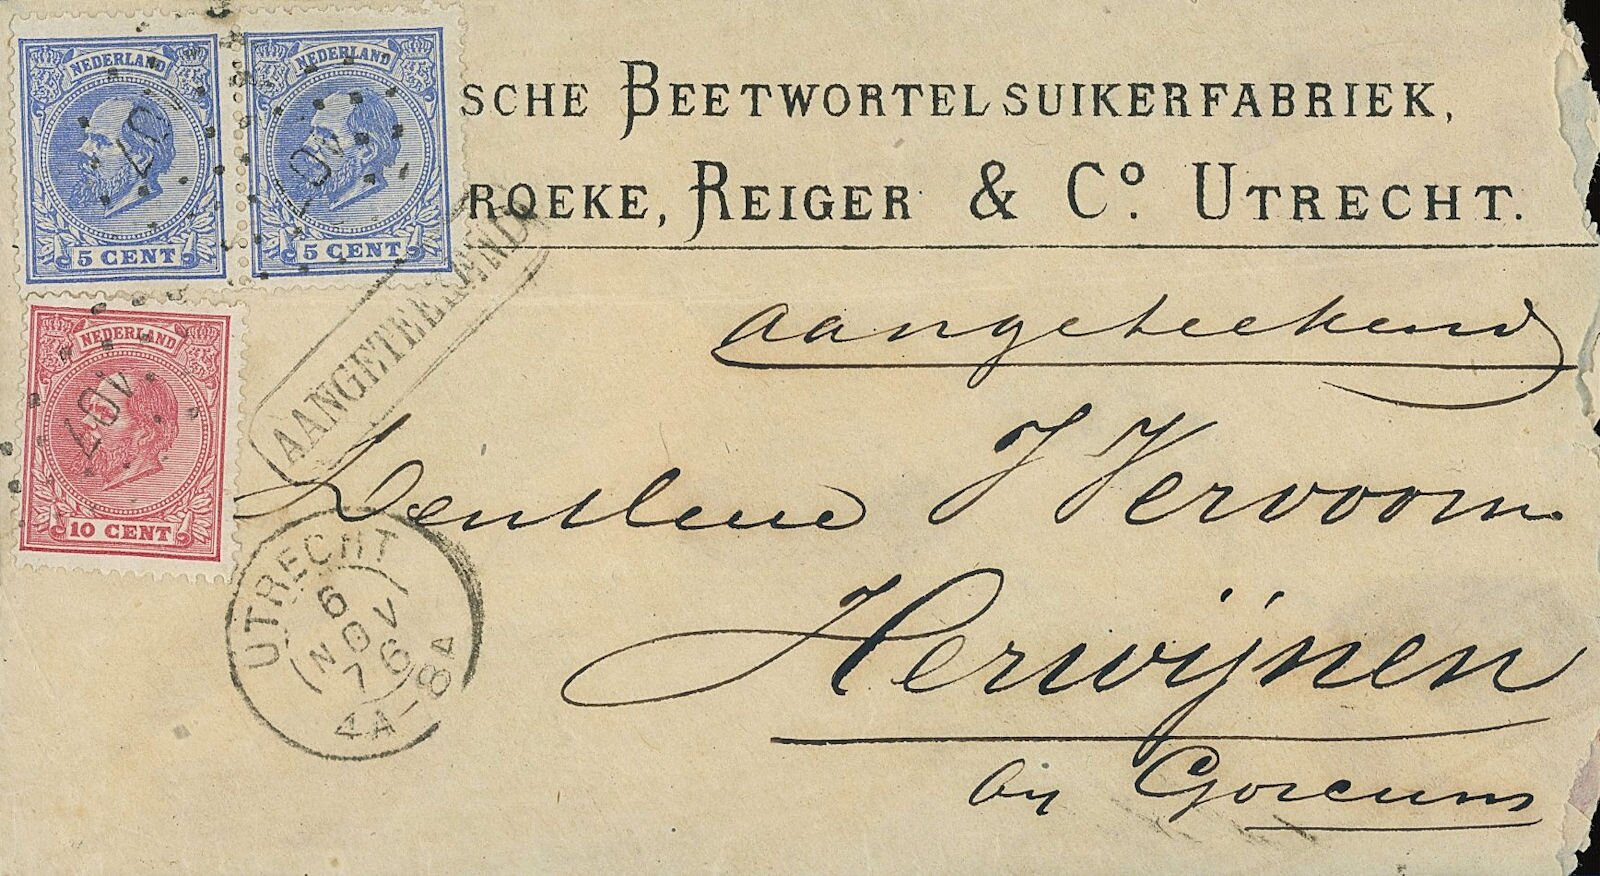 SCHE BEETWORTELSUIKERFABRIEK,
ROEKE, REIGER & Cº. UTRECHT.
NEDERLAND
5 CENT
NEDERLAND
5 CENT
NEDERLAND
10 CENT
107
107
107
AANGETEEKEND
aangeteekend
J Vervoorn
Herwijnen
bij Gorcum
UTRECHT
6
NOV
76
4A-8A